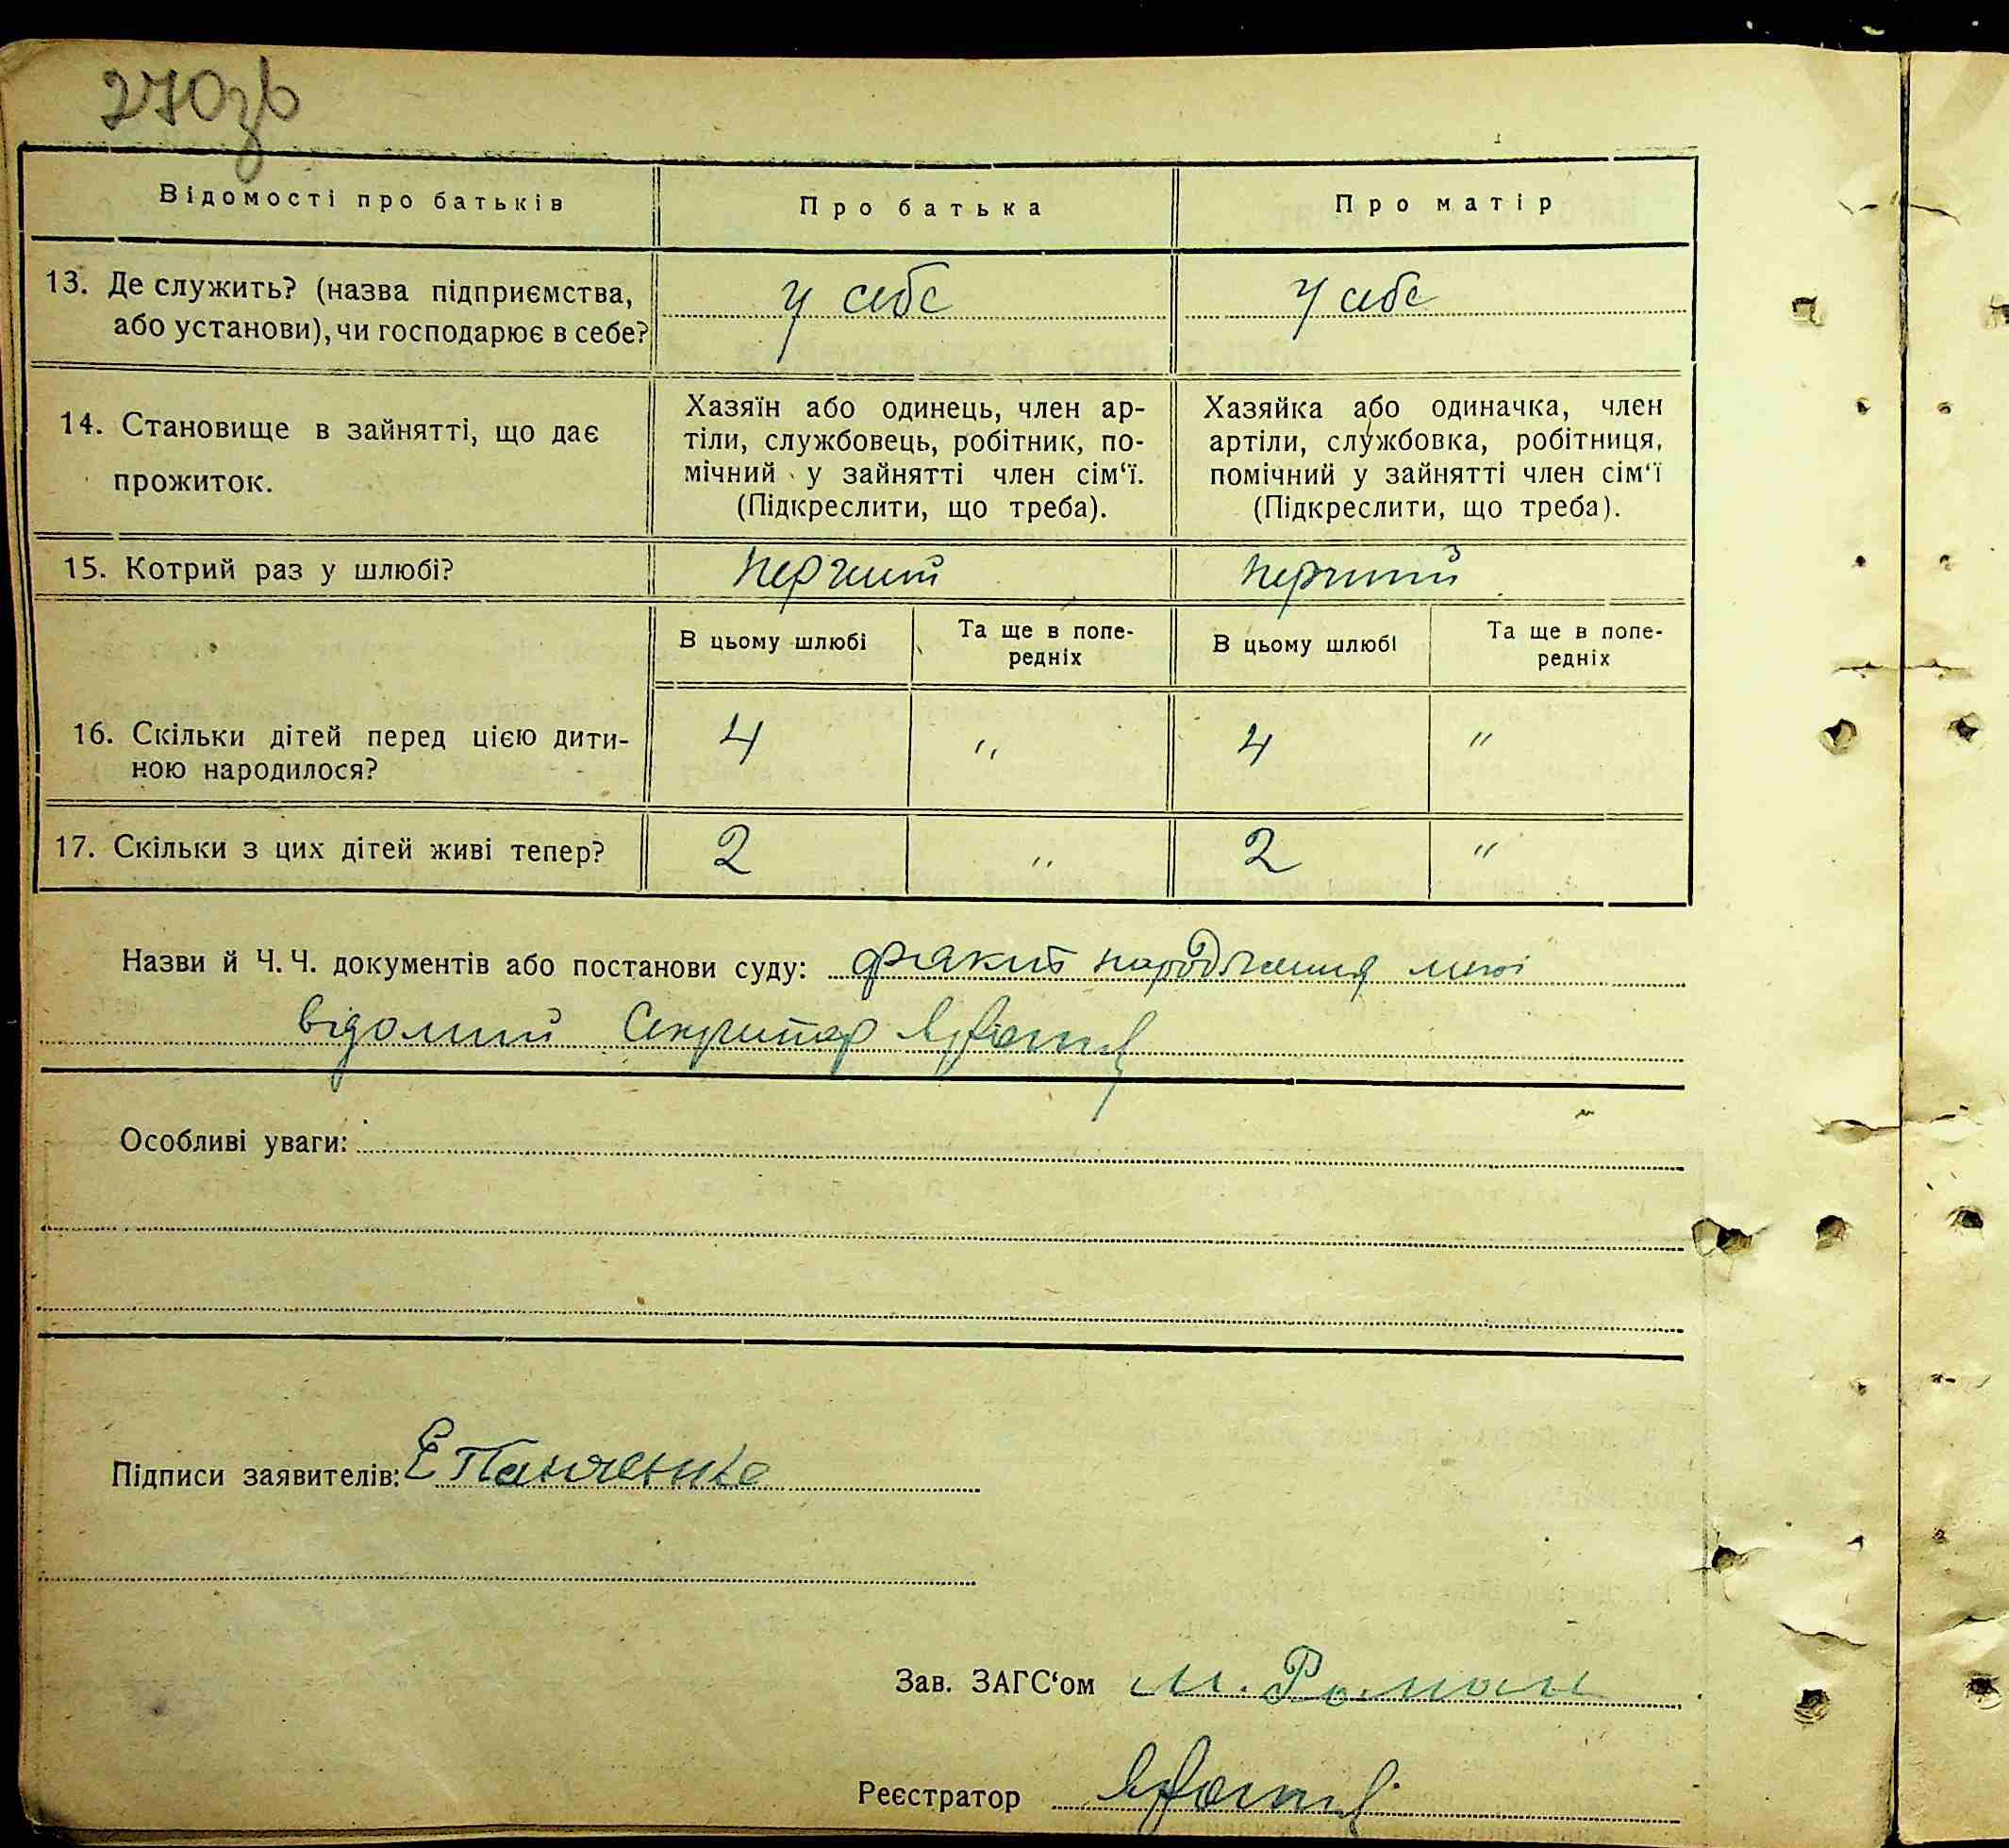 270зв
Відомості про батьків
Про батька
Про матір
13. Де служить? (назва підприємства,
або установи), чи господарює в себе?
у себе
у себе
14. Становище в зайнятті, що дає
прожиток.
Хазяїн або одинець, член ар-
тіли, службовець, робітник, по-
мічний у зайнятті член сім‘ї.
(Підкреслити, що треба).
Хазяйка або одиначка, член
артіли, службовка, робітниця,
помічний у зайнятті член сім‘ї
(Підкреслити, що треба).
15. Котрий раз у шлюбі?
перший
перший
В цьому шлюбі
Та ще в попе-
редніх
В цьому шлюбі
Та ще в попе-
редніх
16. Скільки дітей перед цією дити-
ною народилося?
4
"
4
"
17. Скільки з цих дітей живі тепер?
2
"
2
"
Назви й Ч. Ч. документів або постанови суду: факт народження мені
відомий Секритар
Особливі уваги:
Підписи заявителів: Є Панченко
Зав. ЗАГС‘ом М. Роман
Реєстратор